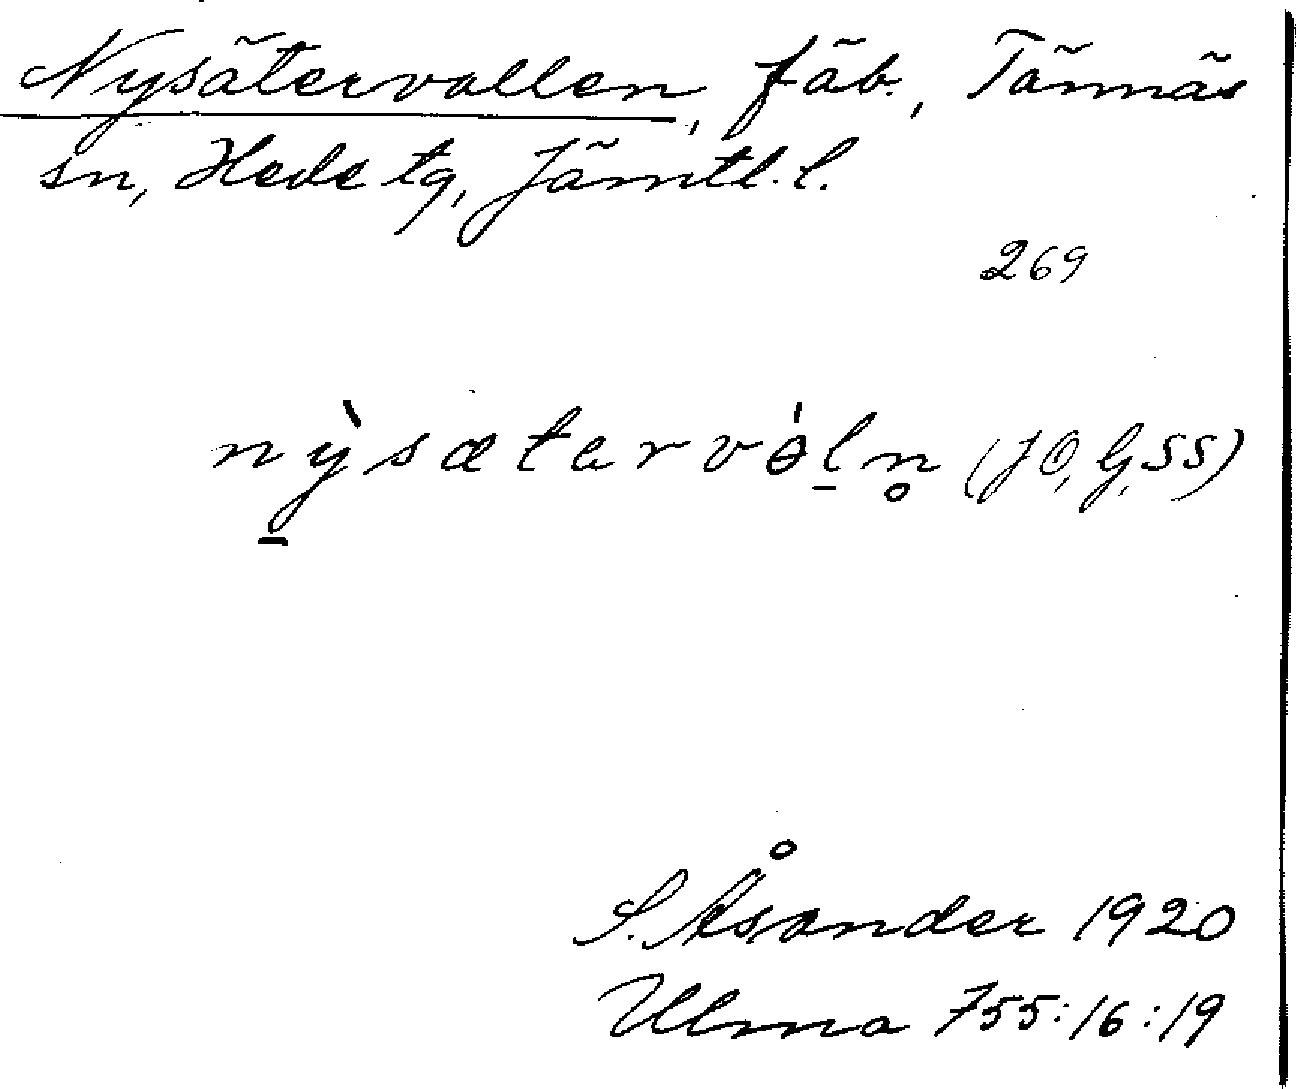 Nysätervallen, fäb., Tännäs
sn, Hede tg, Jämtl. l.
269
nỳ̱sætarvɵ́ḻn̥ (JO, G, SS)
S. Åsander 1920
Ulma 755:16:19